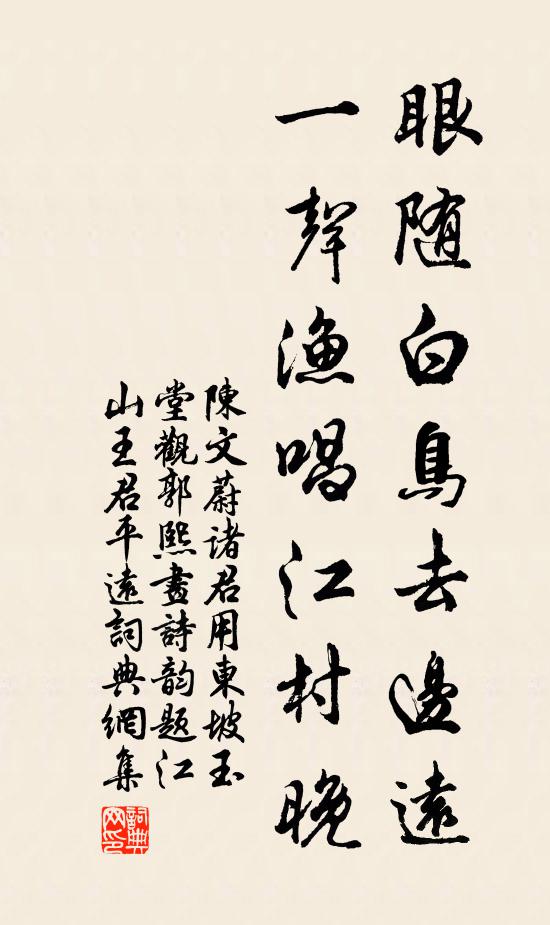 眼随白鳥去邊遠
一聲漁唱江村晚
陳文蔚諸君用東坡玉
堂觀郭熙畫詩韵题江
山王君平遠詞典網集
詞典
网印